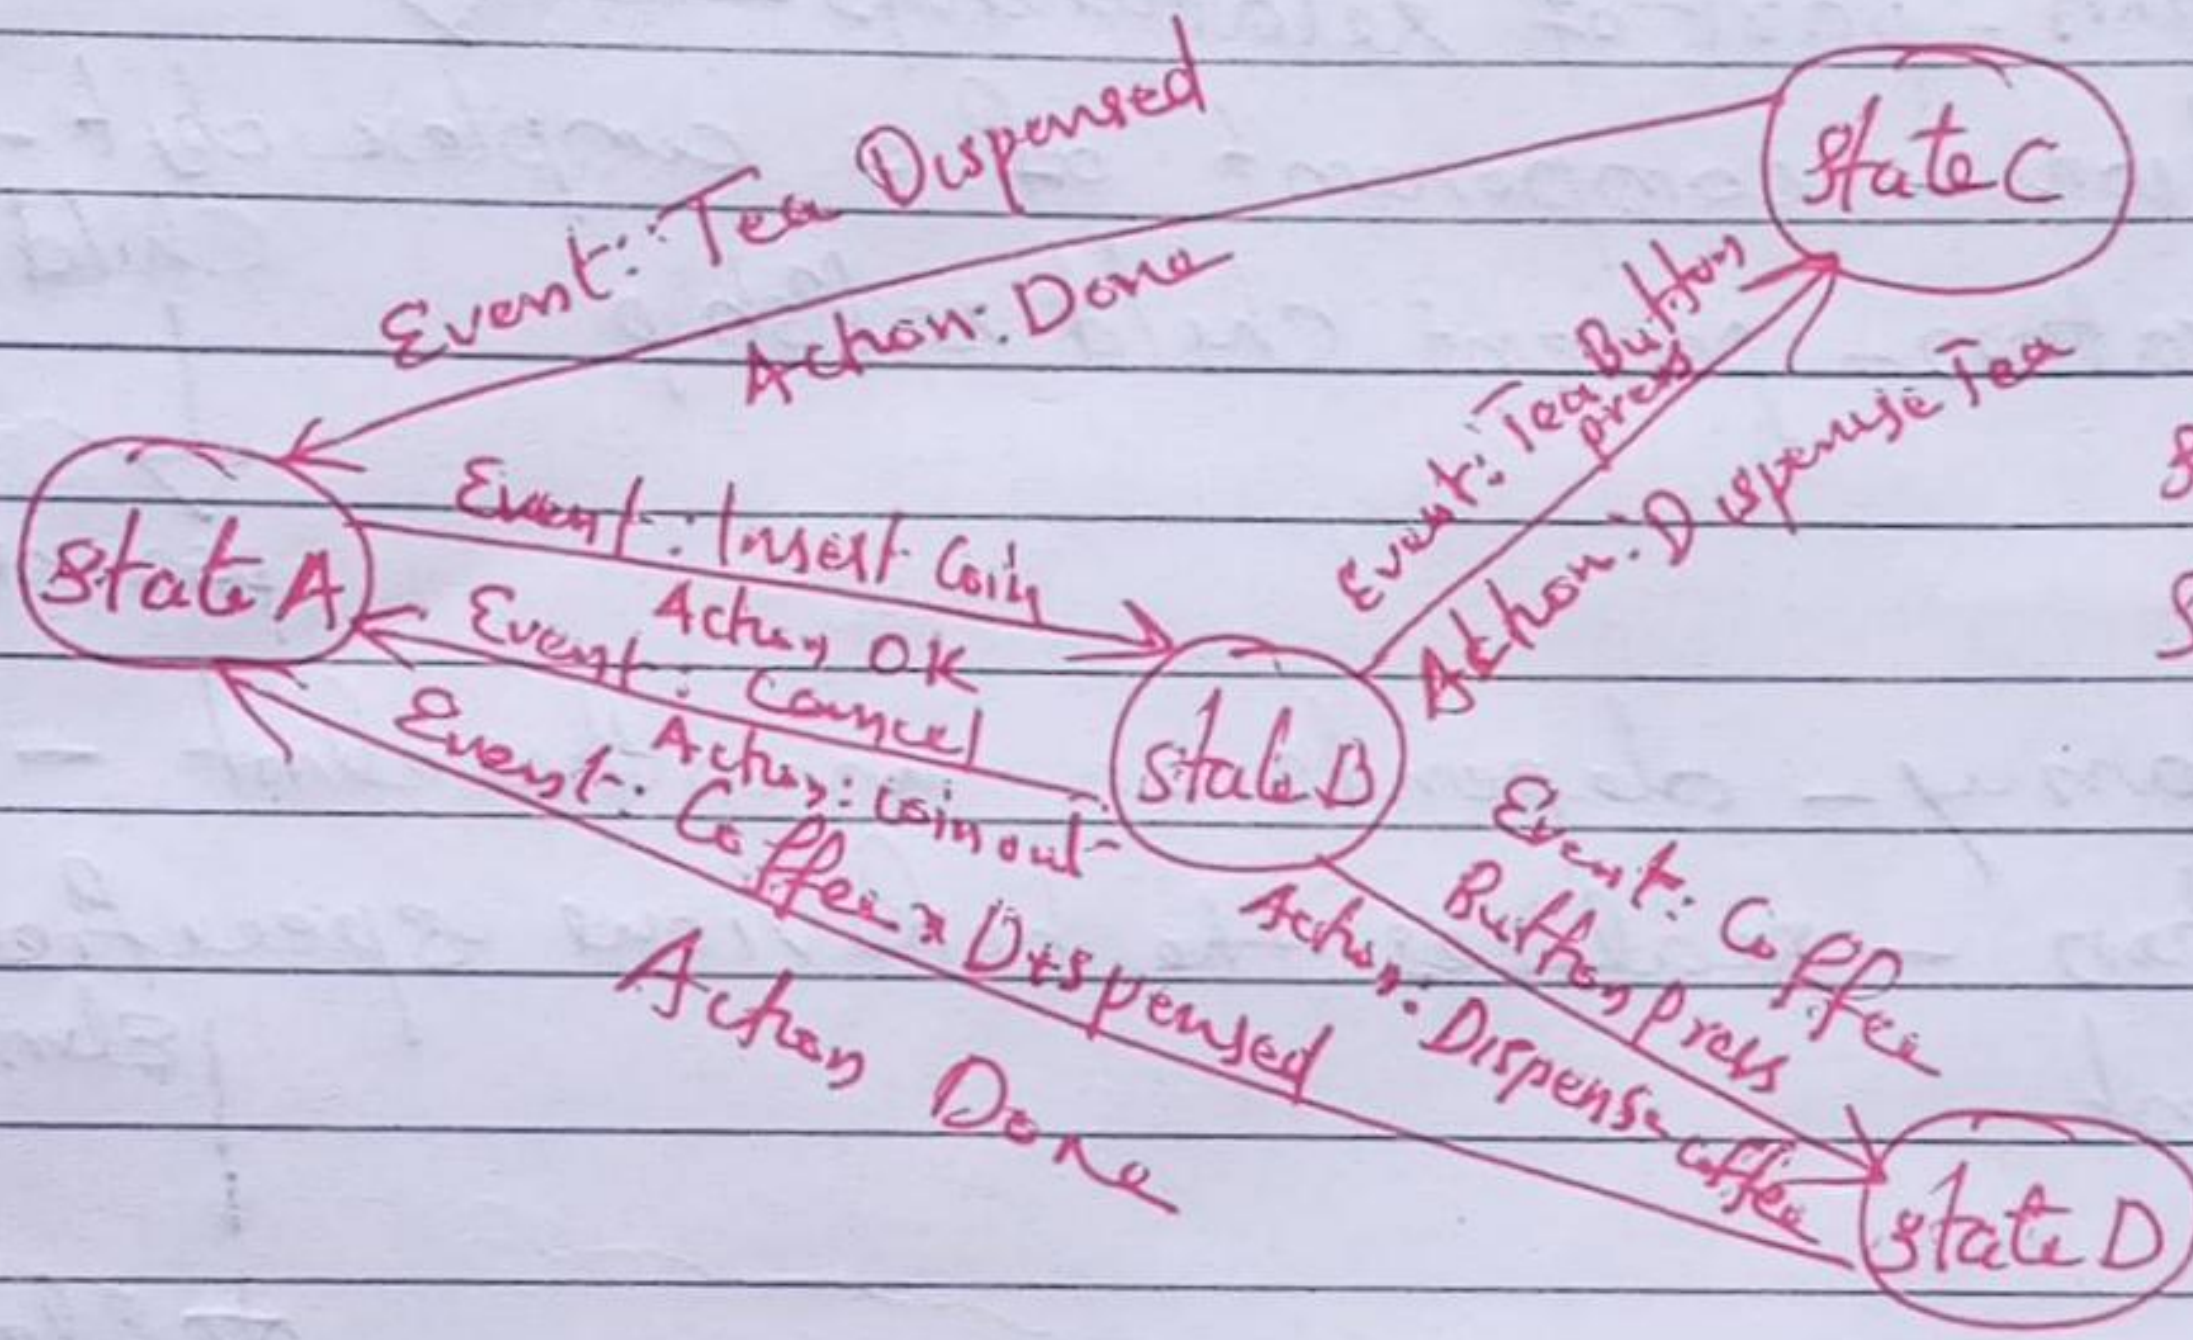 Event: Tea Dispensed
Action: Done
State C
Event: Tea Button
press
Action: Dispense Tea
State A
Event: Insert Coin
Action OK
Event: Cancel
Action: Coin out
State B
Event: Coffee Dispensed
Action Done
Event: Coffee
Button Press
Action: Dispense
Coffee
State D